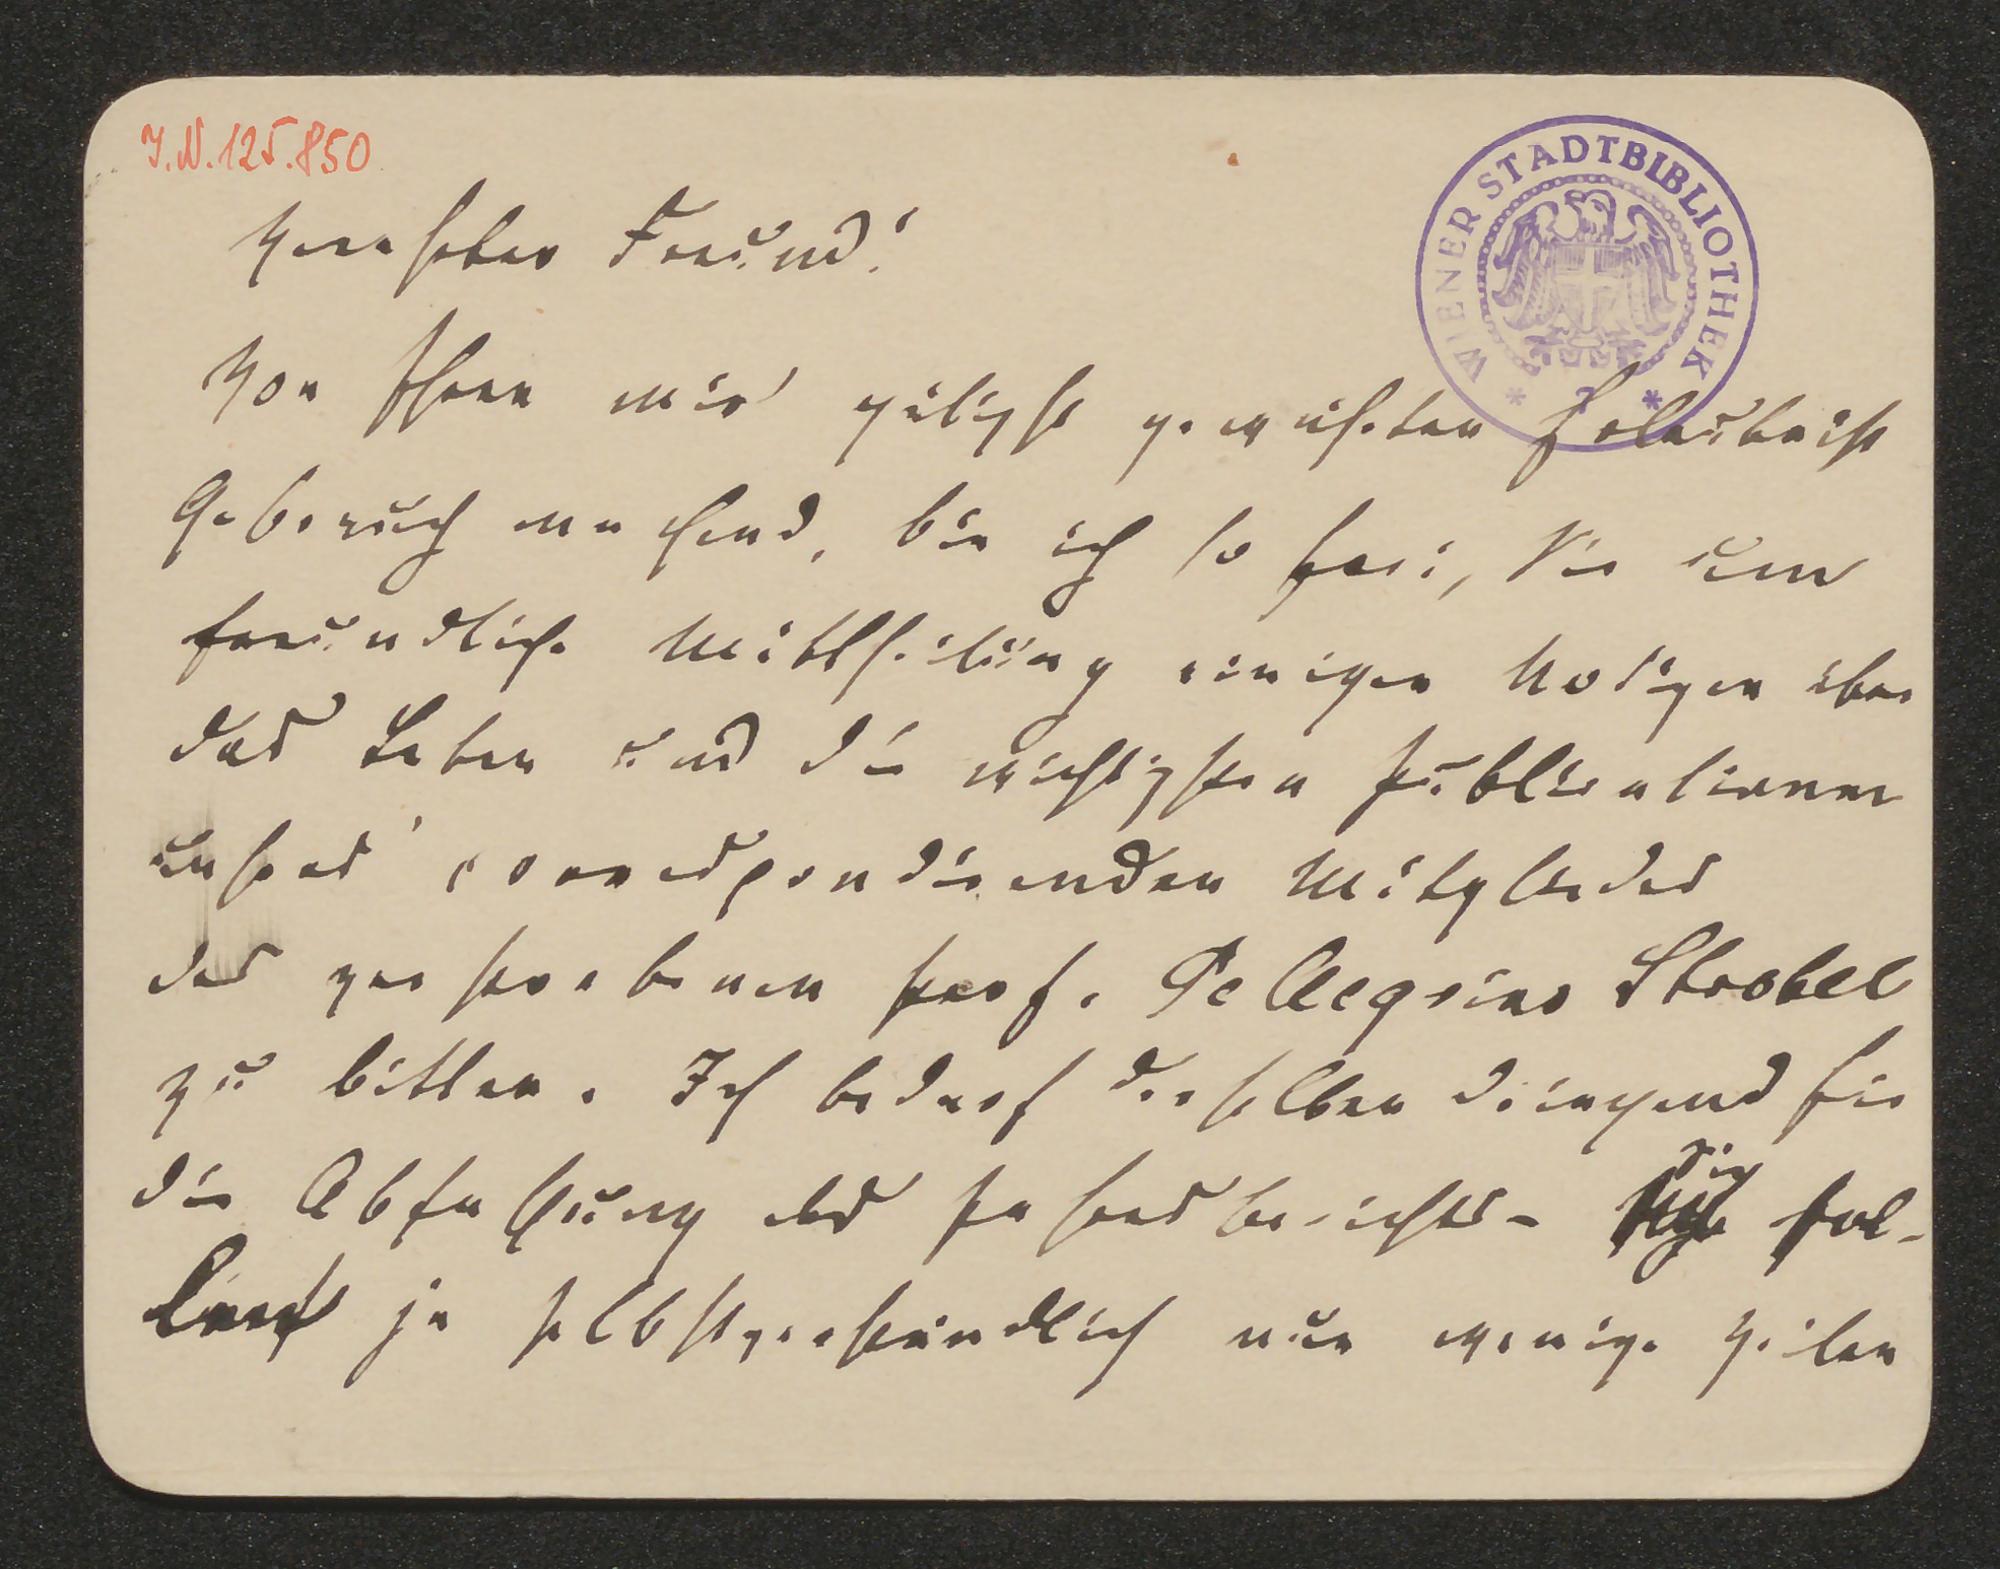 J.N. 125.850
WIENER STADTBIBLIOTHEK
Verehrter Freund!
Von Ihrer mir gütigst gewährten Erlaubniß
Gebrauch machend, bin ich so frei, Sie um
freundliche Mittheilung einiger Notizen über
das Leben und die wichtigsten Publicationen
unseres correspondirenden Mitgliedes
des verstorbenen Prof. Pellegrino Strobel
zu bitten. Ich bedarf derselben dringend für
die Abfassung des Jahresberichts - die
ja selbstverständlich nur wenige Zeilen